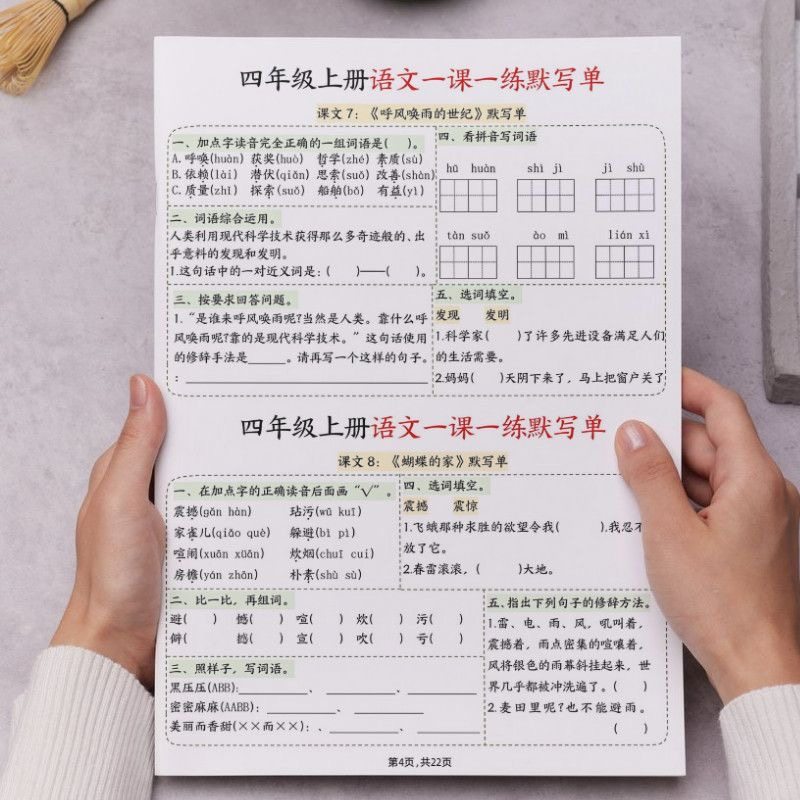 四年级上册语文一课一练默写单
课文7：《呼风唤雨的世纪》默写单
一、加点字读音完全正确的一组词语是(　)。
A.呼唤(huàn) 获奖(huò) 哲学(zhé) 素质(sù)
B.依赖(lài) 潜伏(qiǎn) 思索(suǒ) 改善(shàn)
C.质量(zhǐ) 探索(suǒ) 船舶(bō) 有益(yì)
二、词语综合运用。
人类利用现代科学技术获得那么多奇迹般的、出
乎意料的发现和发明。
1.这句话中的一对近义词是：(　　)——(　　)。
三、按要求回答问题。
1.“是谁来呼风唤雨呢?当然是人类。靠什么呼
风唤雨呢?靠的是现代科学技术。”这句话使用
的修辞手法是______。请再写一个这样的句子。
：______________________________
四、看拼音写词语
hū huàn　shì jì　jì shù
tàn suǒ　ào mì　lián xì
五、选词填空。
发现　发明
1.科学家(　　)了许多先进设备满足人们
的生活需要。
2.妈妈(　　)天阴下来了，马上把窗户关了
四年级上册语文一课一练默写单
课文8：《蝴蝶的家》默写单
一、在加点字的正确读音后面画“√”。
震撼(gǎn hàn)　玷污(wū kuī)
家雀儿(qiǎo què)　躲避(bì pì)
喧闹(xuān xüān)　炊烟(chuī cui)
房檐(yán zhān)　朴素(shù sù)
二、比一比，再组词。
避(　　)　憾(　　)　喧(　　)　炊(　　)　污(　　)
僻(　　)　撼(　　)　宣(　　)　吹(　　)　亏(　　)
三、照样子，写词语。
黑压压(ABB):__________、__________、__________
密密麻麻(AABB):__________、__________、__________
美丽而香甜(××而××)：、__________、__________
四、选词填空。
震撼　震惊
1.飞蛾那种求胜的欲望令我(　　).我忍不
放了它。
2.春雷滚滚，(　　)大地。
五、指出下列句子的修辞方法。
1.雷、电、雨、风，吼叫着，
震撼着，雨点密集的喧嚷着，
风将银色的雨幕斜挂起来，世
界几乎都被冲洗遍了。(　　)
2.麦田里呢?也不能避雨。
(　　)
第4页,共22页